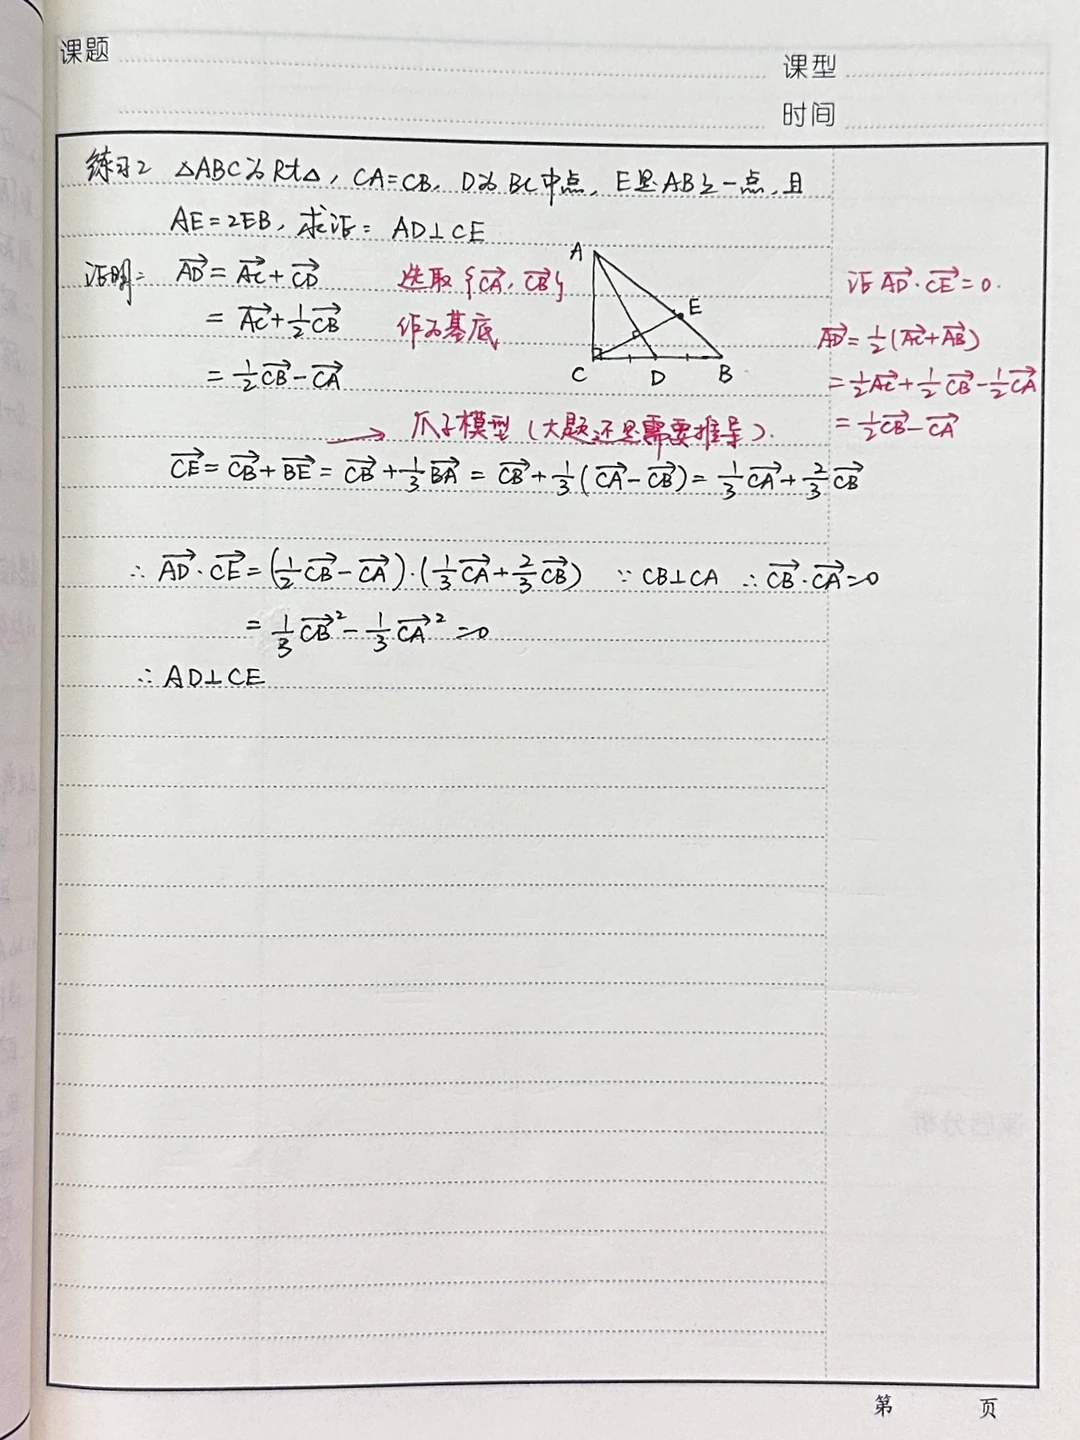 课题
课型
时间
练习2 △ABC为Rt△, CA=CB, D为BC中点, E是AB上一点, 且
AE=2EB, 求证: AD⊥CE
证明: \overrightarrow{AD}=\overrightarrow{AC}+\overrightarrow{CD}
=\overrightarrow{AC}+\frac{1}{2}\overrightarrow{CB}
=\frac{1}{2}\overrightarrow{CB}-\overrightarrow{CA}
选取{\overrightarrow{CA}, \overrightarrow{CB}}
作为基底
A
E
C D B
证\overrightarrow{AD}·\overrightarrow{CE}=0.
\overrightarrow{AD}=\frac{1}{2}(\overrightarrow{AC}+\overrightarrow{AB})
=\frac{1}{2}\overrightarrow{AC}+\frac{1}{2}\overrightarrow{CB}-\frac{1}{2}\overrightarrow{CA}
=\frac{1}{2}\overrightarrow{CB}-\overrightarrow{CA}
→ 爪子模型(大题还是需要推导).
\overrightarrow{CE}=\overrightarrow{CB}+\overrightarrow{BE}=\overrightarrow{CB}+\frac{1}{3}\overrightarrow{BA}=\overrightarrow{CB}+\frac{1}{3}(\overrightarrow{CA}-\overrightarrow{CB})=\frac{1}{3}\overrightarrow{CA}+\frac{2}{3}\overrightarrow{CB}
∴ \overrightarrow{AD}·\overrightarrow{CE}=(\frac{1}{2}\overrightarrow{CB}-\overrightarrow{CA})·(\frac{1}{3}\overrightarrow{CA}+\frac{2}{3}\overrightarrow{CB}) ∵ CB⊥CA ∴ \overrightarrow{CB}·\overrightarrow{CA}=0
=\frac{1}{3}\overrightarrow{CB}²-\frac{1}{3}\overrightarrow{CA}²=0
∴ AD⊥CE
第 页